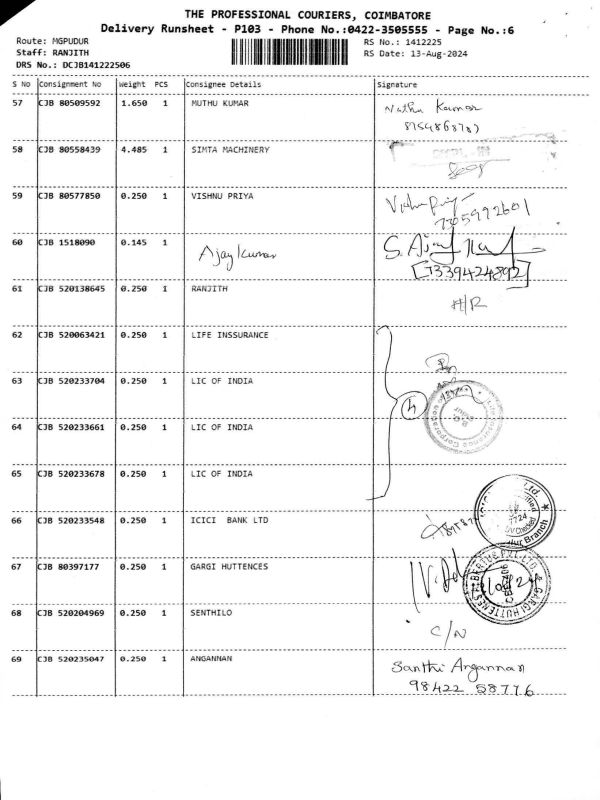 THE PROFESSIONAL COURIERS, COIMBATORE
Delivery Runsheet - P103 - Phone No.:0422-3505555 - Page No.:6
Route: MGPUDUR RS No.: 1412225
Staff: RANJITH RS Date: 13-Aug-2024
DRS No.: DCJB141222506
S No Consignment No Weight PCS Consignee Details Signature
57 CJB 80509592 1.650 1 MUTHU KUMAR Kumar
58 CJB 80558439 4.485 1 SIMTA MACHINERY
59 CJB 80577850 0.250 1 VISHNU PRIYA
7305992601
60 CJB 1518090 0.145 1 Ajay Kumar S. Ajay
7339424892
61 CJB 520138645 0.250 1 RANJITH H/R
62 CJB 520063421 0.250 1 LIFE INSSURANCE
63 CJB 520233704 0.250 1 LIC OF INDIA
4
64 CJB 520233661 0.250 1 LIC OF INDIA
65 CJB 520233678 0.250 1 LIC OF INDIA
66 CJB 520233548 0.250 1 ICICI BANK LTD
67 CJB 80397177 0.250 1 GARGI HUTTENCES
68 CJB 520204969 0.250 1 SENTHILO C/N
69 CJB 520235047 0.250 1 ANGANNAN Santhi Angannan
98422 58776